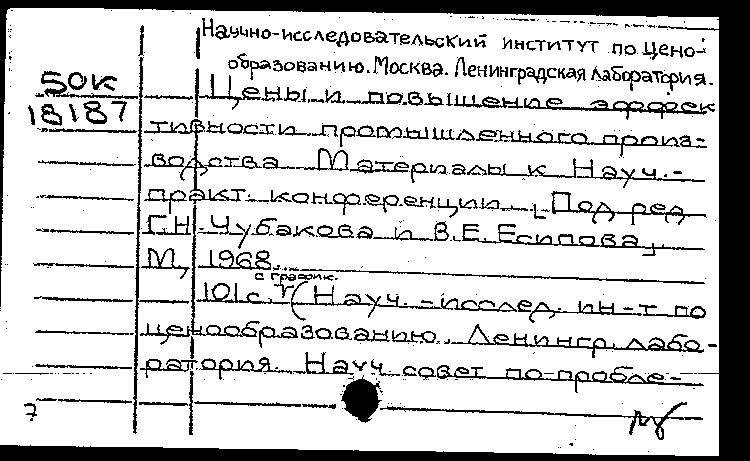 Научно-исследовательский институт по цено-
образованию. Москва. Ленинградская лаборатория.
50К
18187
Цены и повышение эффек
тивности промышленного произ-
водства Материалы к Науч.-
практ. конференции. [Под ред
Г.Н. Чубакова и В.Е. Есипова]
М, 1968.
с график.
101с. (Науч.-исслед. ин-т по
ценообразованию. Ленингр. лабо-
ратория. Науч совет по пробле-
7